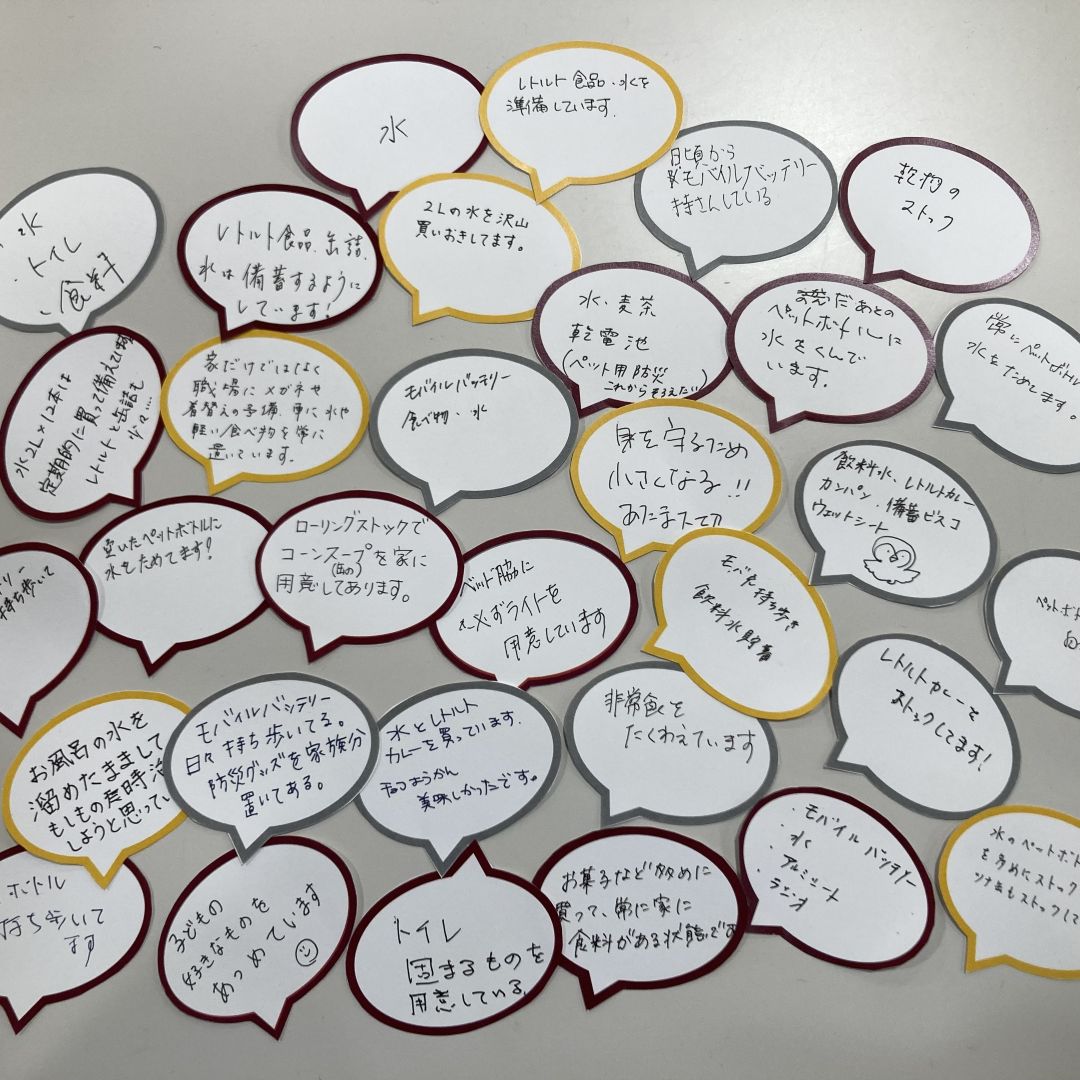 水
レトルト食品、水を
準備しています.
日頃から
モバイルバッテリー
持さんしている
乾物の
ストック
・水
・トイレ
・食菓子
レトルト食品、缶詰、
水は備蓄するように
しています!
2Lの水を沢山
買いおきしてます。
水、麦茶
乾電池
(ペット用防災
これからそろえたい)
飲だあとの
ペットボトルに
水をくんで
います.
常にペットボトル
水をためてます。
水2L×12本は
定期的に買って備えて
レトルトと缶詰も
少々....
家だけではなく
職場にメガネや
着替えの予備、車に水や
軽い食べ物を常に
置いています.
モバイルバッテリー
食べ物・水
身を守るため
小さくなる!!
あたま大切
飲料水、レトルトカレー
カンパン、備蓄ビスコ
ウェットシート
リー
持ち歩いて
空いたペットボトルに
水をためてます!
ローリングストックで
コーンスープを家に
(缶の)
用意してあります。
ベッド脇に
必ずライトを
用意しています
モバ充持ち歩き
飲料水貯蓄
ペットボ
レトルトカレーを
ストックしてます!
お風呂の水を
溜めたままして
もしもの時
しようと思ってい
モバイルバッテリー
日々持ち歩いてる。
防災グッズを家族分
置いてある。
水とレトルト
カレーを買っています.
ようかん
美味しかったです。
非常食を
たくわえています
・モバイルバッテリー
・水
・アルミシート
・ラジオ
水のペットボト
を多めにストック
ツナ缶もストックして
ボトル
持ち歩いて
ます
子どもの
好きなものを
あつめています
トイレ
固まるものを
用意している.
お菓子など多めに
買って、常に家に
食料がある状態です